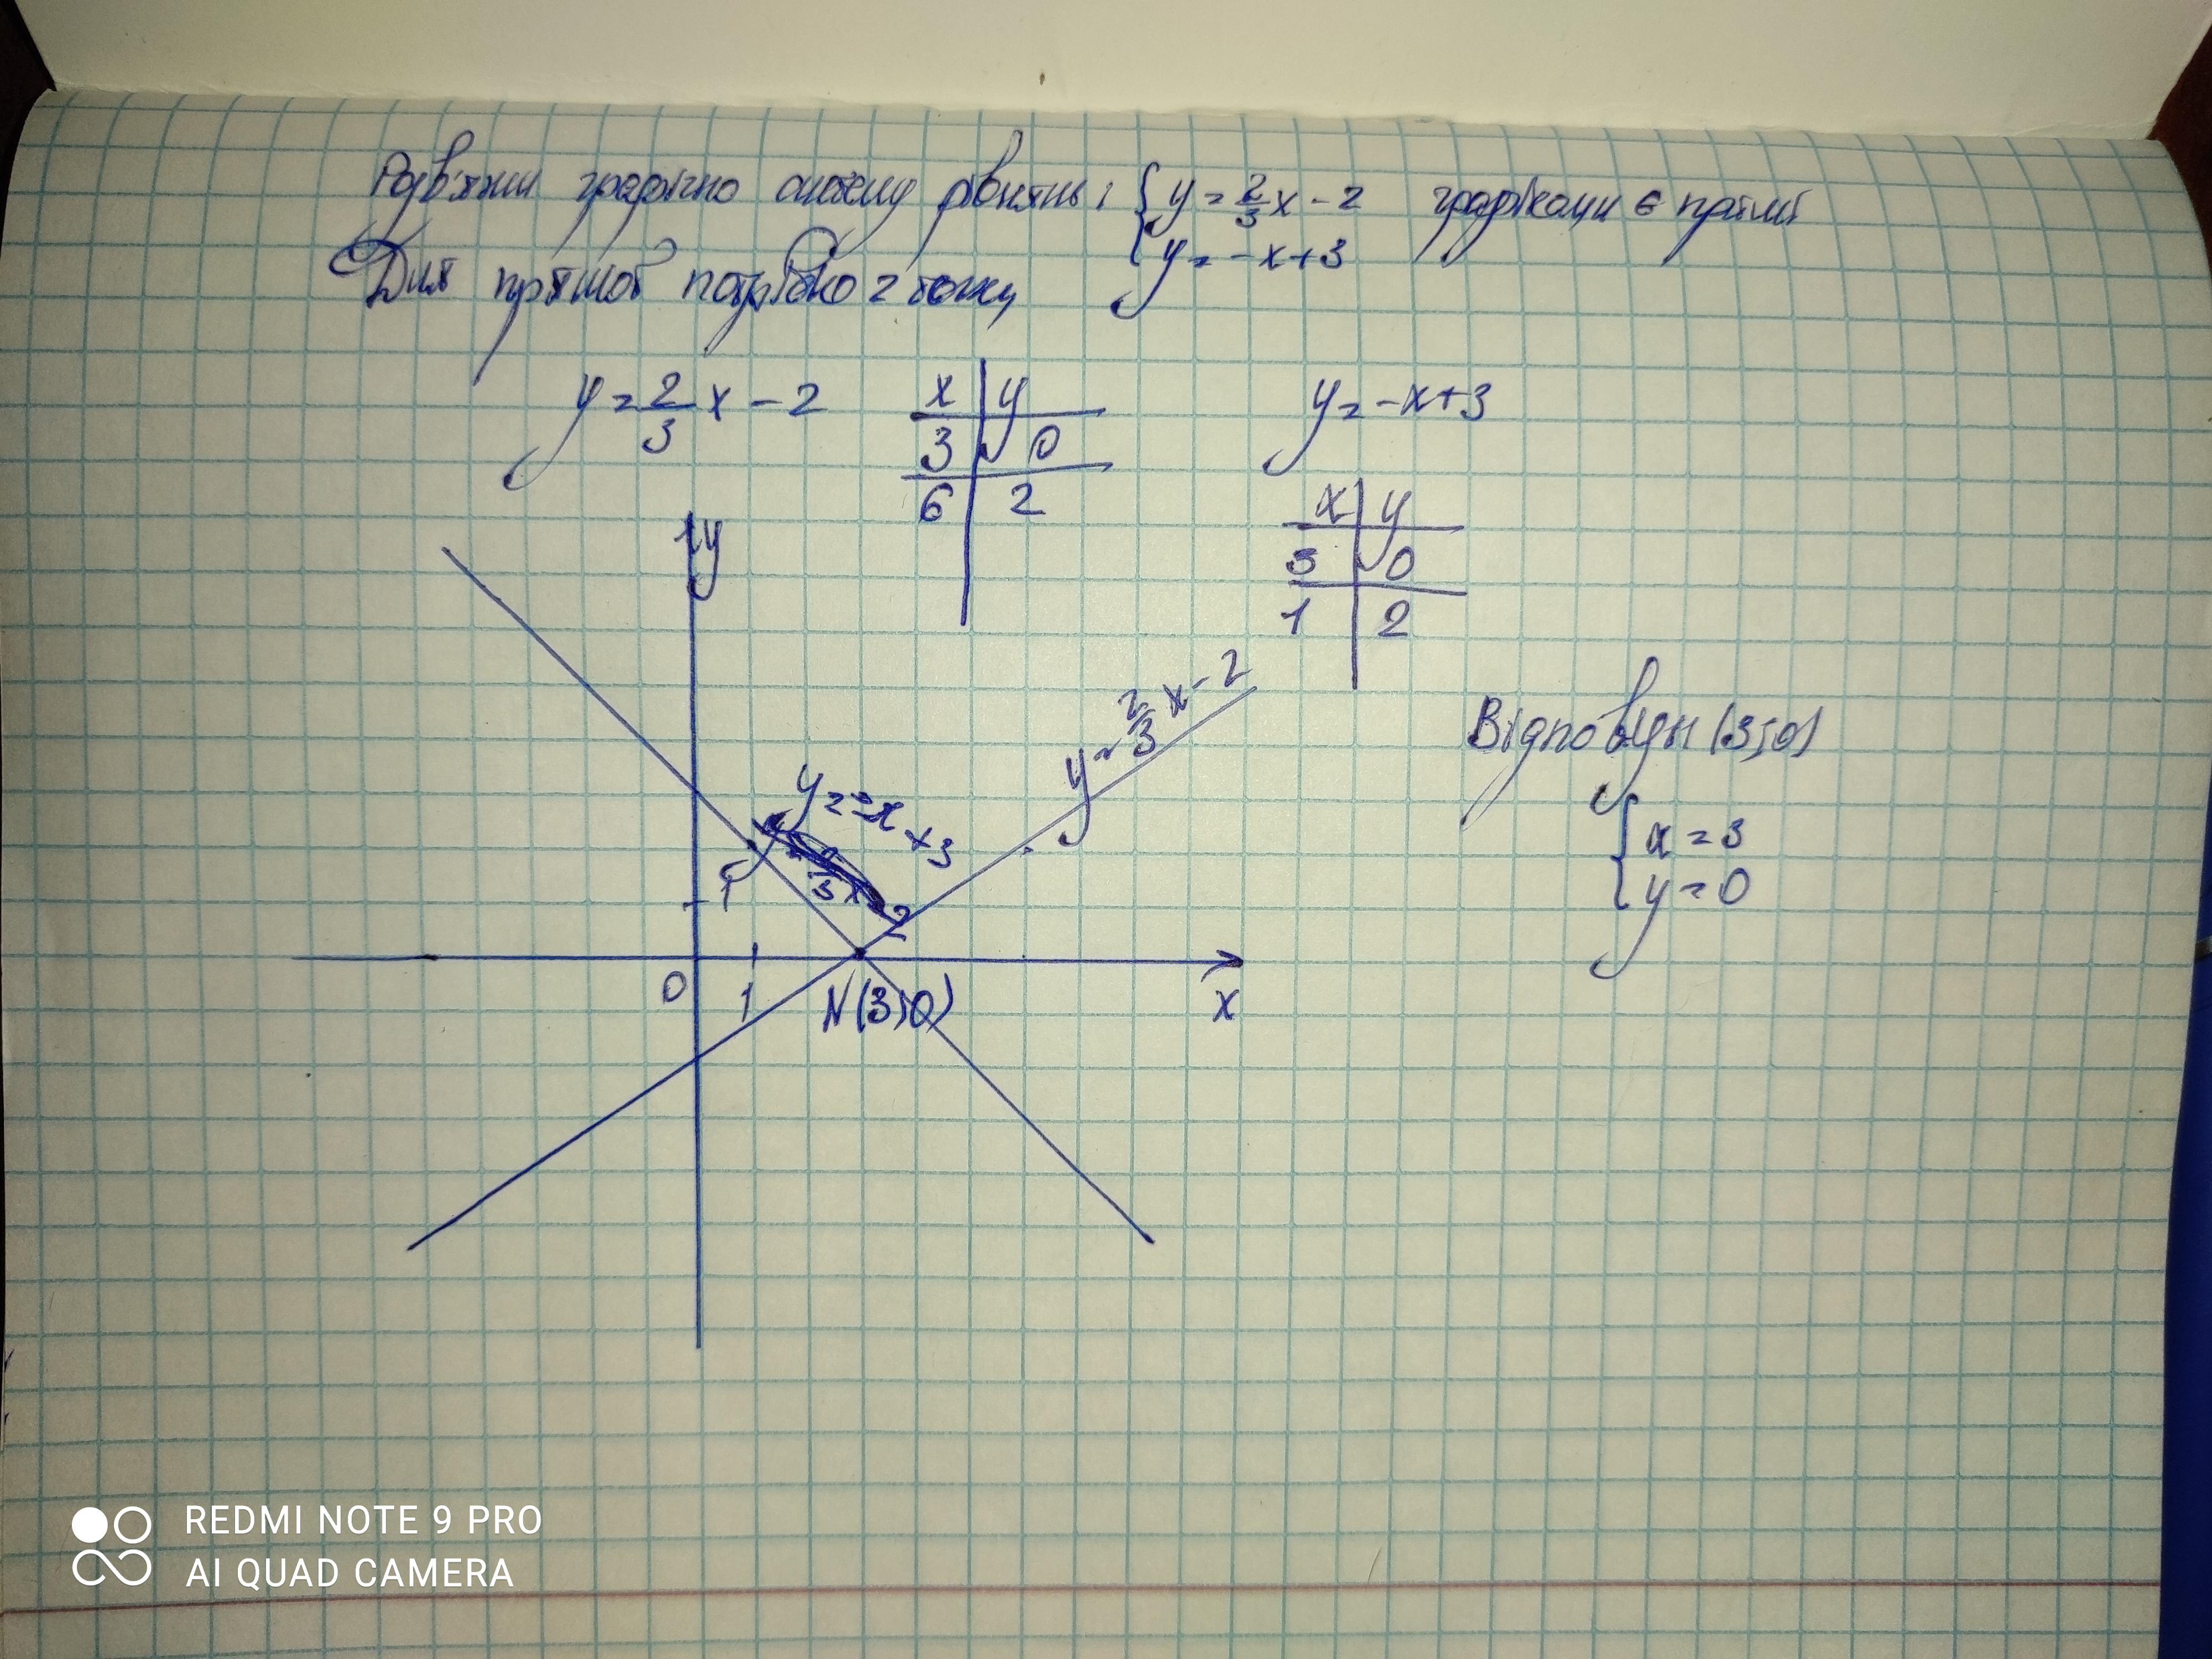 Розв'яжи графічно систему рівнянь: { y = 2/3 x - 2 графіками є прямі
{ y = -x+3
Для прямої потрібно 2 точки
y = 2/3 x - 2
x | y
3 | 0
6 | 2
y = -x+3
x | y
3 | 0
1 | 2
y
y = -x +3
y = 2/3 x - 2
1
0
1
N(3;0)
x
Відповідь (3;0)
{ x = 3
{ y = 0
REDMI NOTE 9 PRO
AI QUAD CAMERA